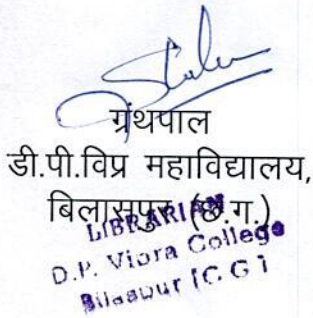 ग्रंथपाल
डी.पी.विप्र महाविद्यालय,
बिलासपुर (छ.ग.)
LIBRARIAN
D.P. Vipra College
Bilaspur [C G ]